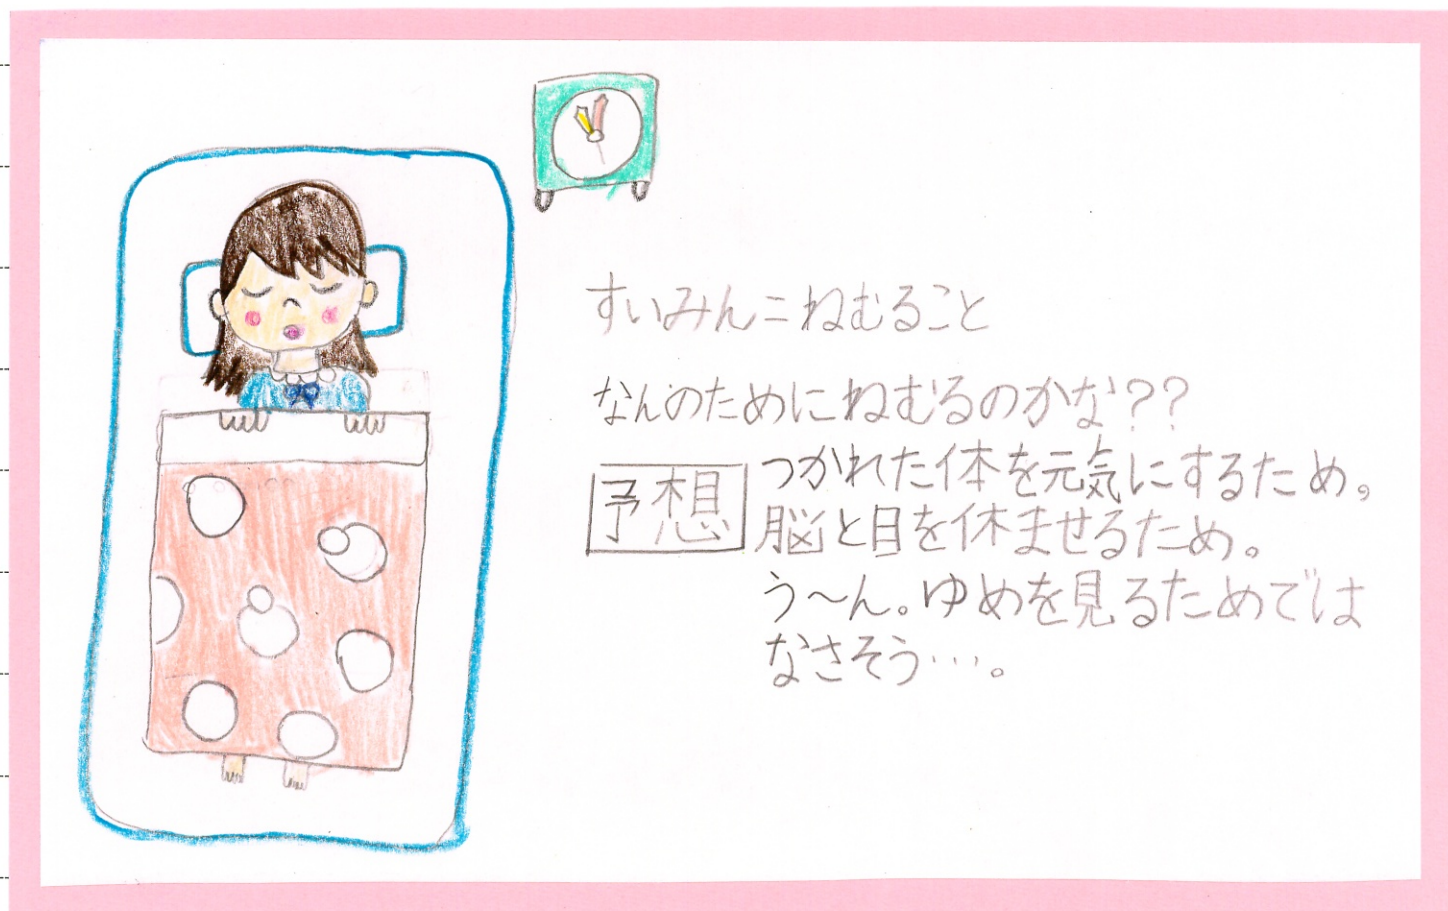 すいみん＝ねむること
なんのためにねむるのかな??
予想
つかれた体を元気にするため。
脳と目を休ませるため。
う〜ん。ゆめを見るためでは
なさそう…。